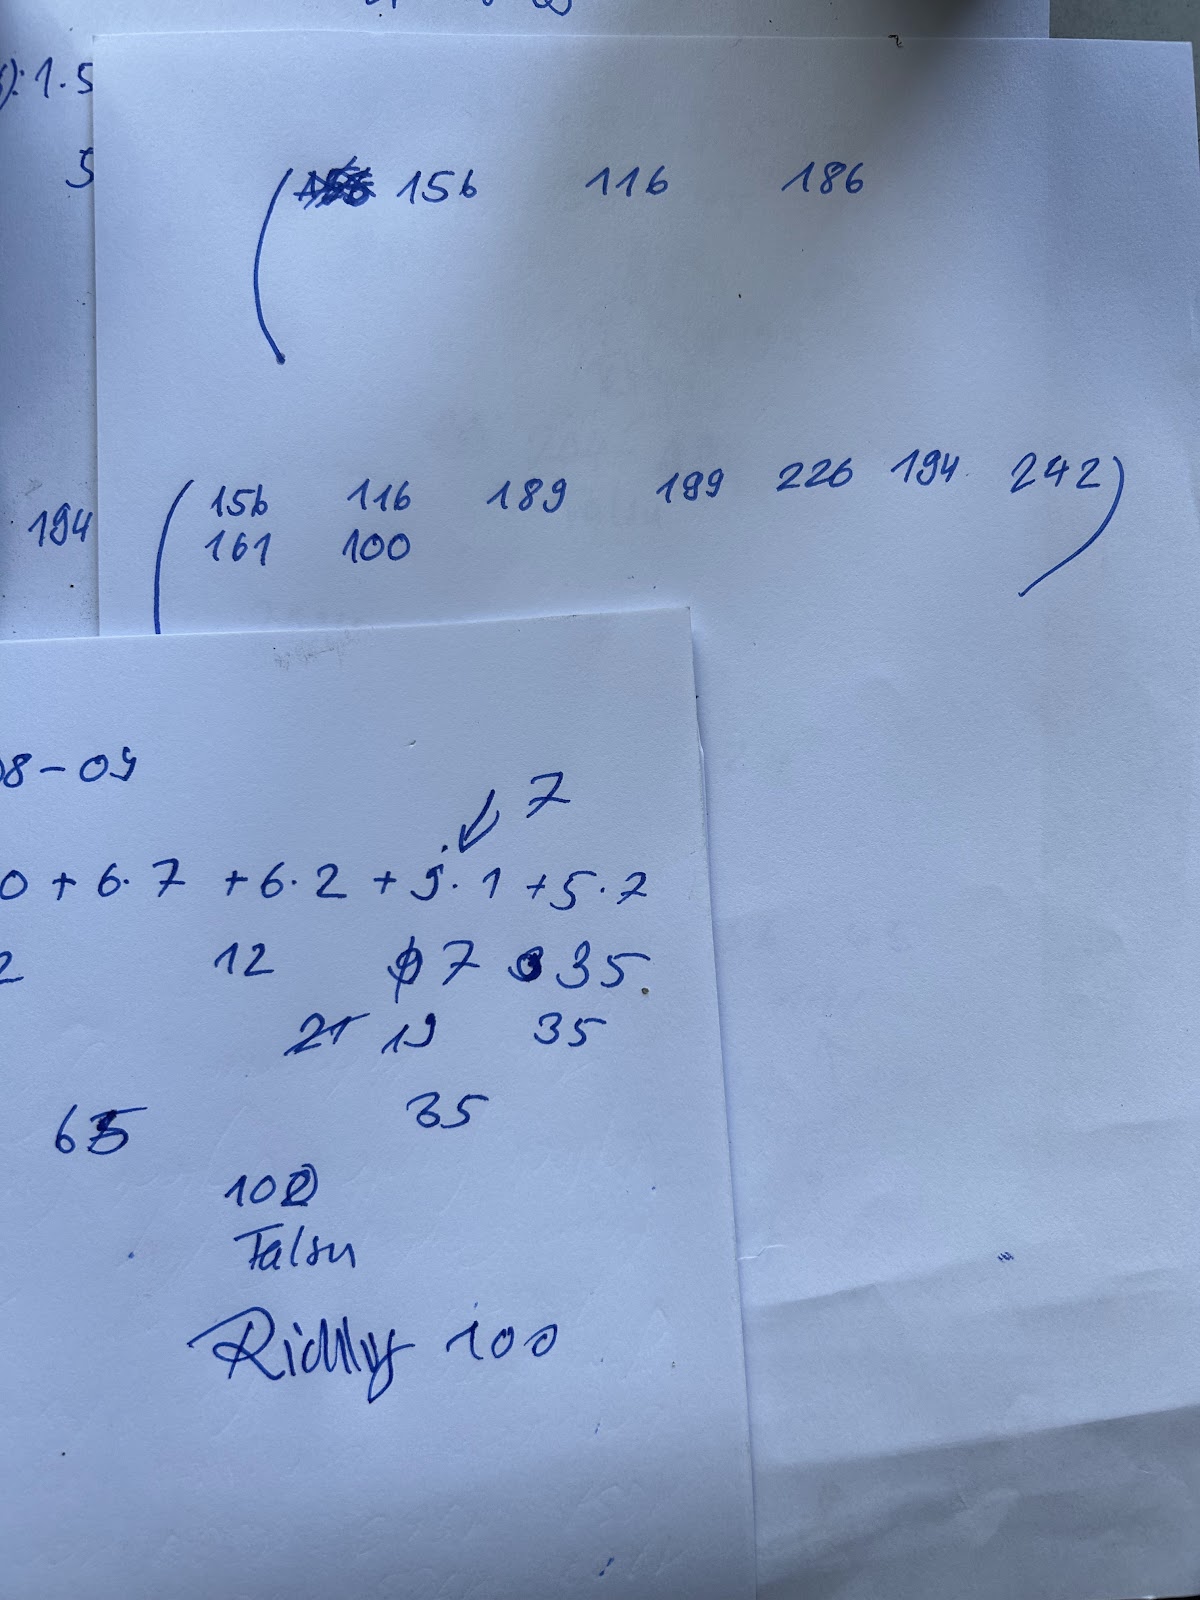 ): 1.5
5
156 116 186
194
156 116 189 199 226 194 242
161 100
08-09
7
0 + 6·7 + 6·2 + 5·1 + 5·7
2 12 7 35
21 19 35
65 35
100
Falsch
Richtig 100